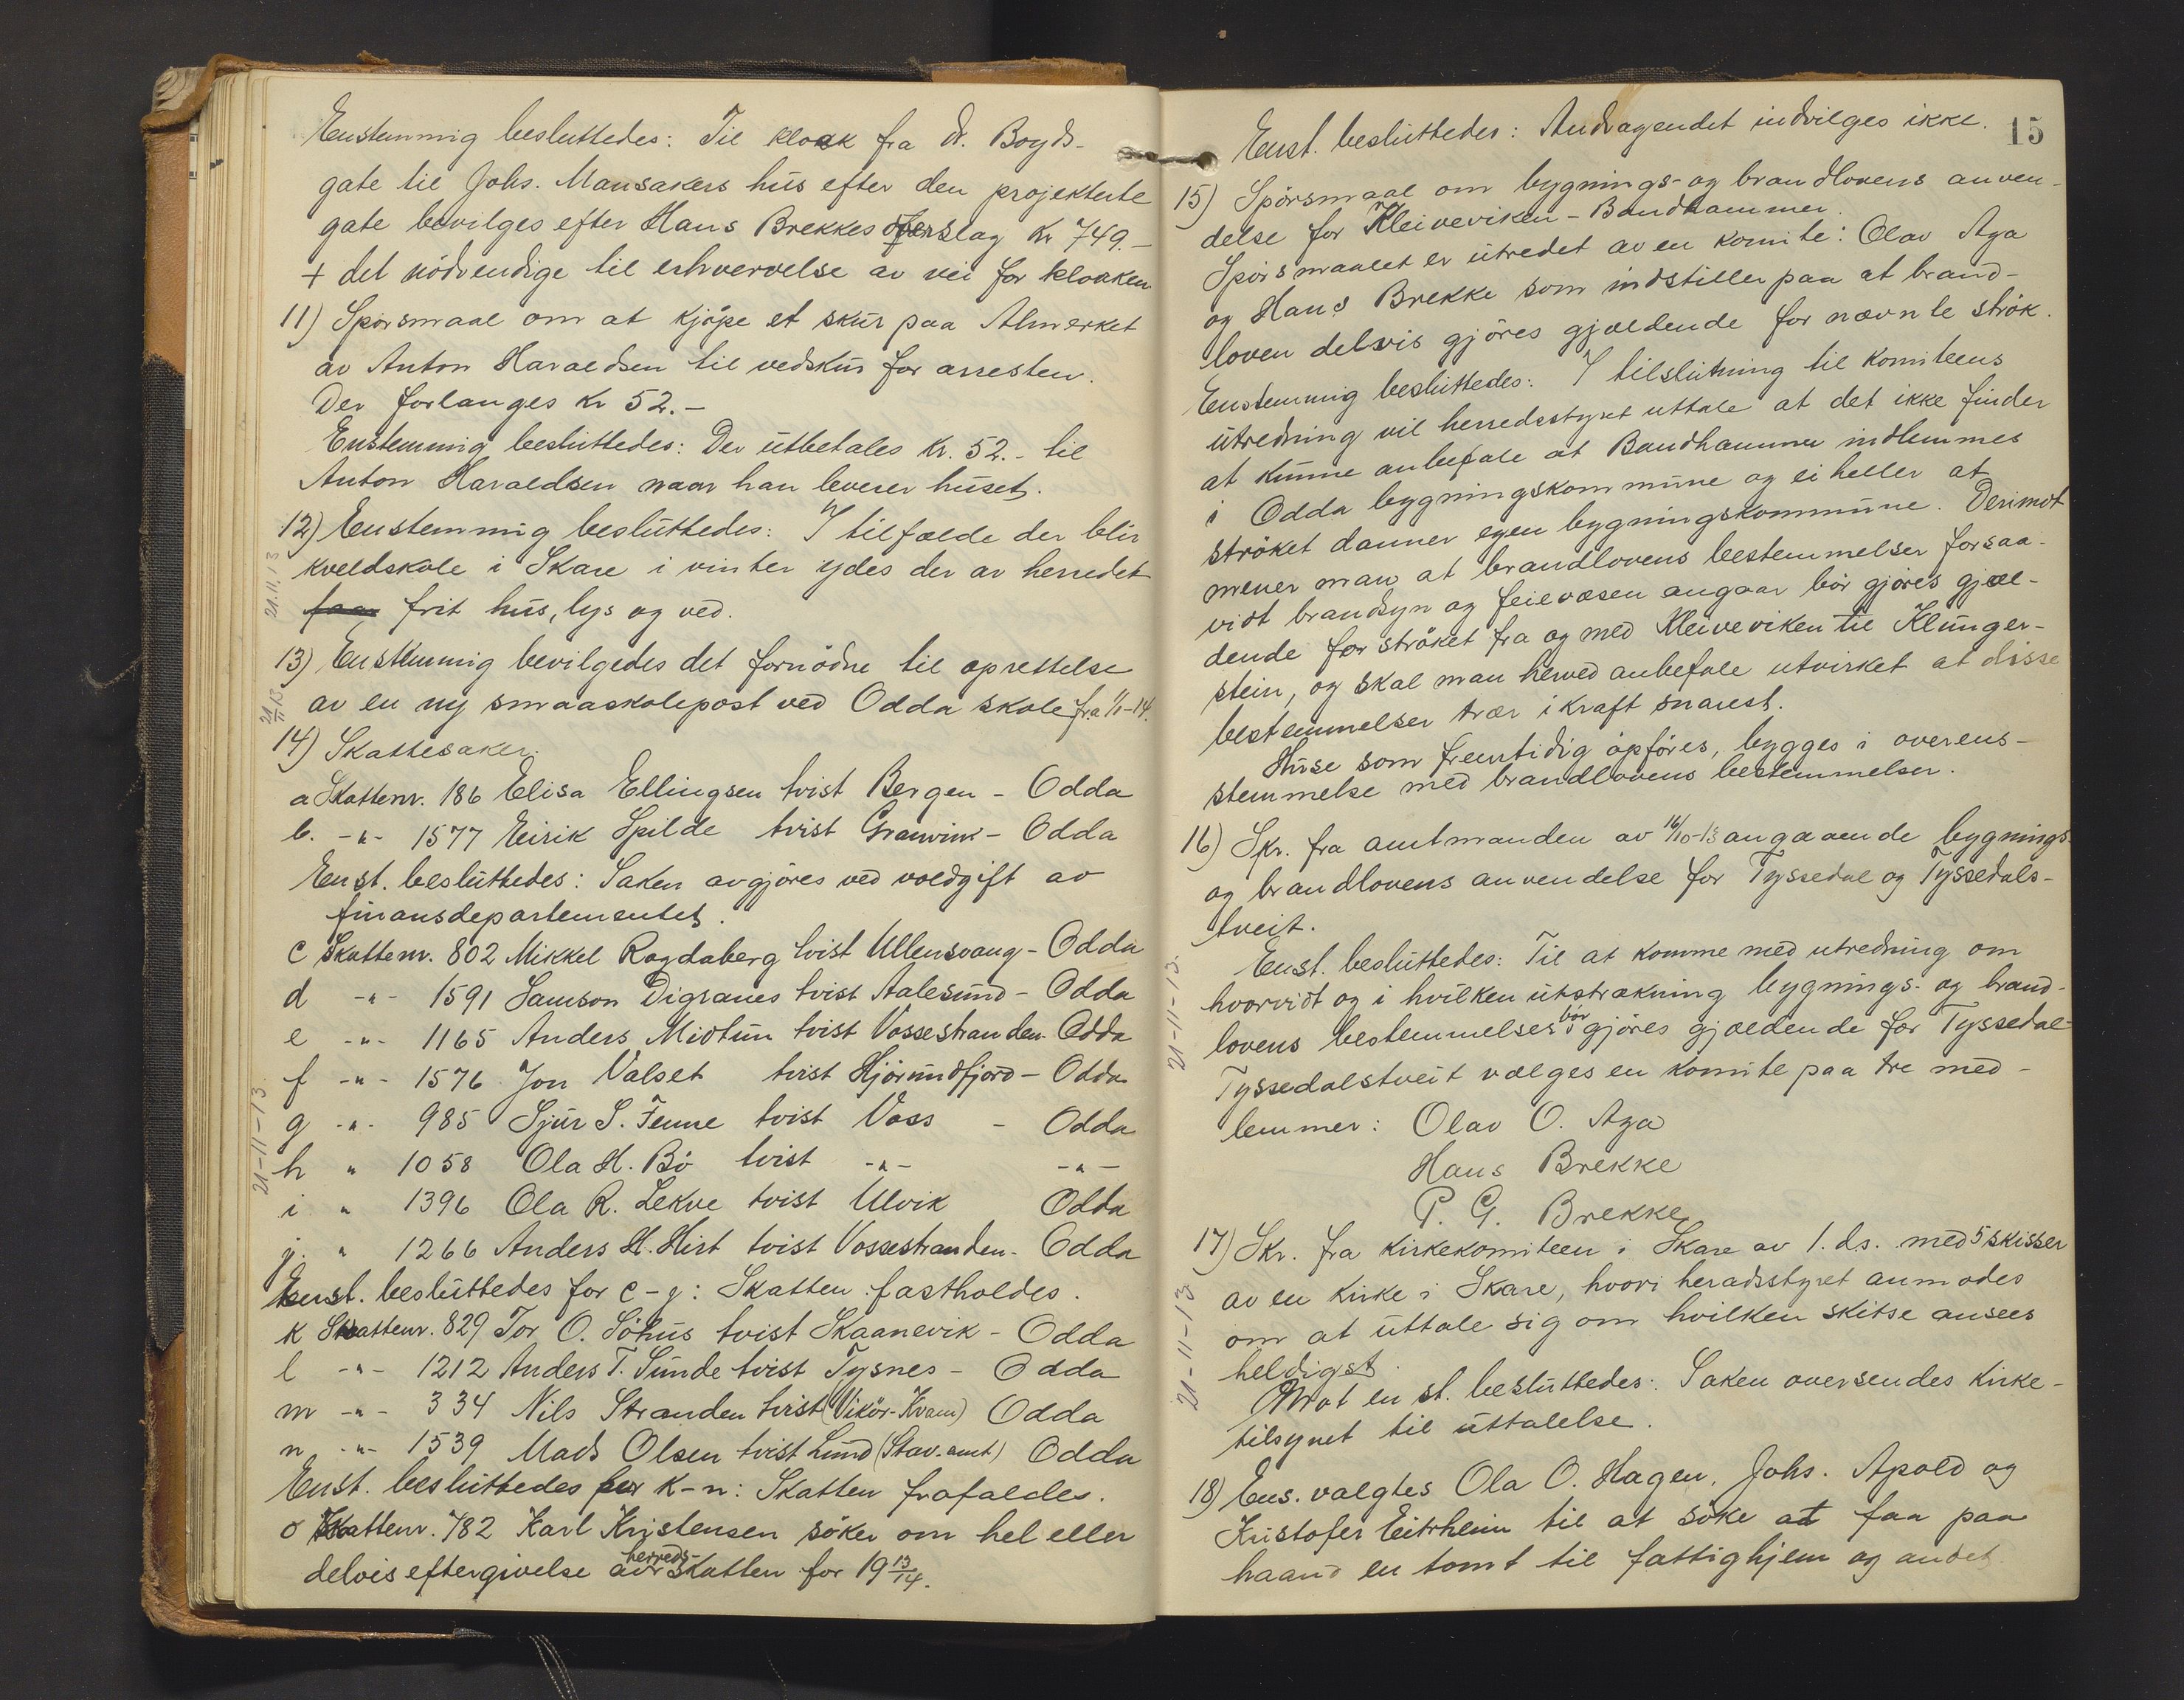 Enstemmig besluttedes: Til kloak fra dr. Boyds-
gate til Johs. Mansakers hus efter den projekterte
gate bevilges efter Hans Brekkes overslag Kr 749.-
+ det nödvendige til erhvervelse av vei for kloaken
11) Spørsmaal om at kjøpe et skur paa Almerket
av Anton Haraldsen til vedskur for arresten.
Der forlanges Kr 52.-
Enstemmig besluttedes: Der utbetales Kr. 52.- til
Anton Haraldsen naar han leverer huset.
12) Enstemmig besluttedes: I tilfælde der blir
kveldskole i Skare i vinter ydes der av herredet
frit hus, lys og ved.
21.11.13
13) Enstemmig bevilgedes det fornödne til oprettelse
av en ny smaaskolepost ved Odda skole fra 1/1-14.
21/11 13
14) Skattesaker.
a Skattenr. 186 Elisa Ellingsen tvist Bergen - Odda
b. -"- 1577 Eirik Spilde tvist Granvin - Odda
Enst. besluttedes: Saken avgjöres ved voldgift av
finansdepartementet.
c Skattenr. 802 Mikkel Ragdaberg tvist Ullensvang - Odda
d -"- 1591 Samson Digranes tvist Aalesund - Odda
e -"- 1165 Anders Midtun tvist Vossestranden - Odda
f -"- 1576 Jon Valset tvist Hjörundfjord - Odda
g -"- 985 Sjur S. Fenne tvist Voss - Odda
h " 1058 Ola H. Bö tvist -"- -"-
i " 1396 Ola R. Lekve tvist Ulvik Odda
j. " 1266 Anders H. Hirt tvist Vossestranden - Odda
21-11-13
Enst. besluttedes for c-j: Skatten fastholdes.
k Skattenr. 829 Tor O. Söhus tvist Skaanevik - Odda
l -"- 1212 Anders T. Sunde tvist Tysnes - Odda
m -"- 334 Nils Stranden tvist (Vikör-Kvam) Odda
n -"- 1539 Mads Olsen tvist Lund (Stav. amt) Odda
Enst. besluttedes for k-n: Skatten frafaldes.
o Skattenr. 782 Karl Kristensen söker om hel eller
delvis eftergivelse av herreds-skatten for 19 13/14.
15
Enst. besluttedes: Andragendet indvilges ikke.
15) Spörsmaal om bygnings- og brandlovens anven-
delse for Kleiveviken - Bandhammer.
Spörsmaalet er utredet av en komite: Olav Aga
og Hans Brekke som indstiller paa at brand-
loven delvis gjöres gjældende for nævnte strök.
Enstemmig besluttedes: I tilslutning til komiteens
utredning vil herredsstyret uttale at det ikke finder
at kunne anbefale at Bandhammer indlemmes
i Odda bygningskommune og ei heller at
ströket danner egen bygningskommune. Derimot
mener man at brandlovens bestemmelser forsaa-
vidt brandsyn og feievæsen angaar bör gjöres gjæl-
dende for ströket fra og med Kleiveviken til Klunger-
stein, og skal man herved anbefale utvirket at disse
bestemmelser trær i kraft snarest.
Huse som fremtidig opföres, bygges i overens-
stemmelse med brandlovens bestemmelser.
16) Skr. fra amtmanden av 16/10-13 angaaende bygnings-
og brandlovens anvendelse for Tyssedal og Tyssedals-
tveit.
Enst. besluttedes: Til at komme med utredning om
hvorvidt og i hvilken utstrækning bygnings- og brand-
lovens bestemmelser bör gjöres gjældende for Tyssedal-
Tyssedalstveit vælges en komite paa tre med-
lemmer: Olav O. Aga
Hans Brekke
P. G. Brekke
21-11-13.
17) Skr. fra kirkekomiteen i Skare av 1. ds. med 5 skisser
av en kirke i Skare, hvori heradsstyret anmodes
om at uttale sig om hvilken skitse ansees
heldigst.
Mot en st. besluttedes: Saken oversendes kirke-
tilsynet til uttalelse.
21-11-13
18) Ens. valgtes Ola O. Hagen, Johs. Apold og
Kristofer Eitrheim til at söke at faa paa
haand en tomt til fattighjem og andet